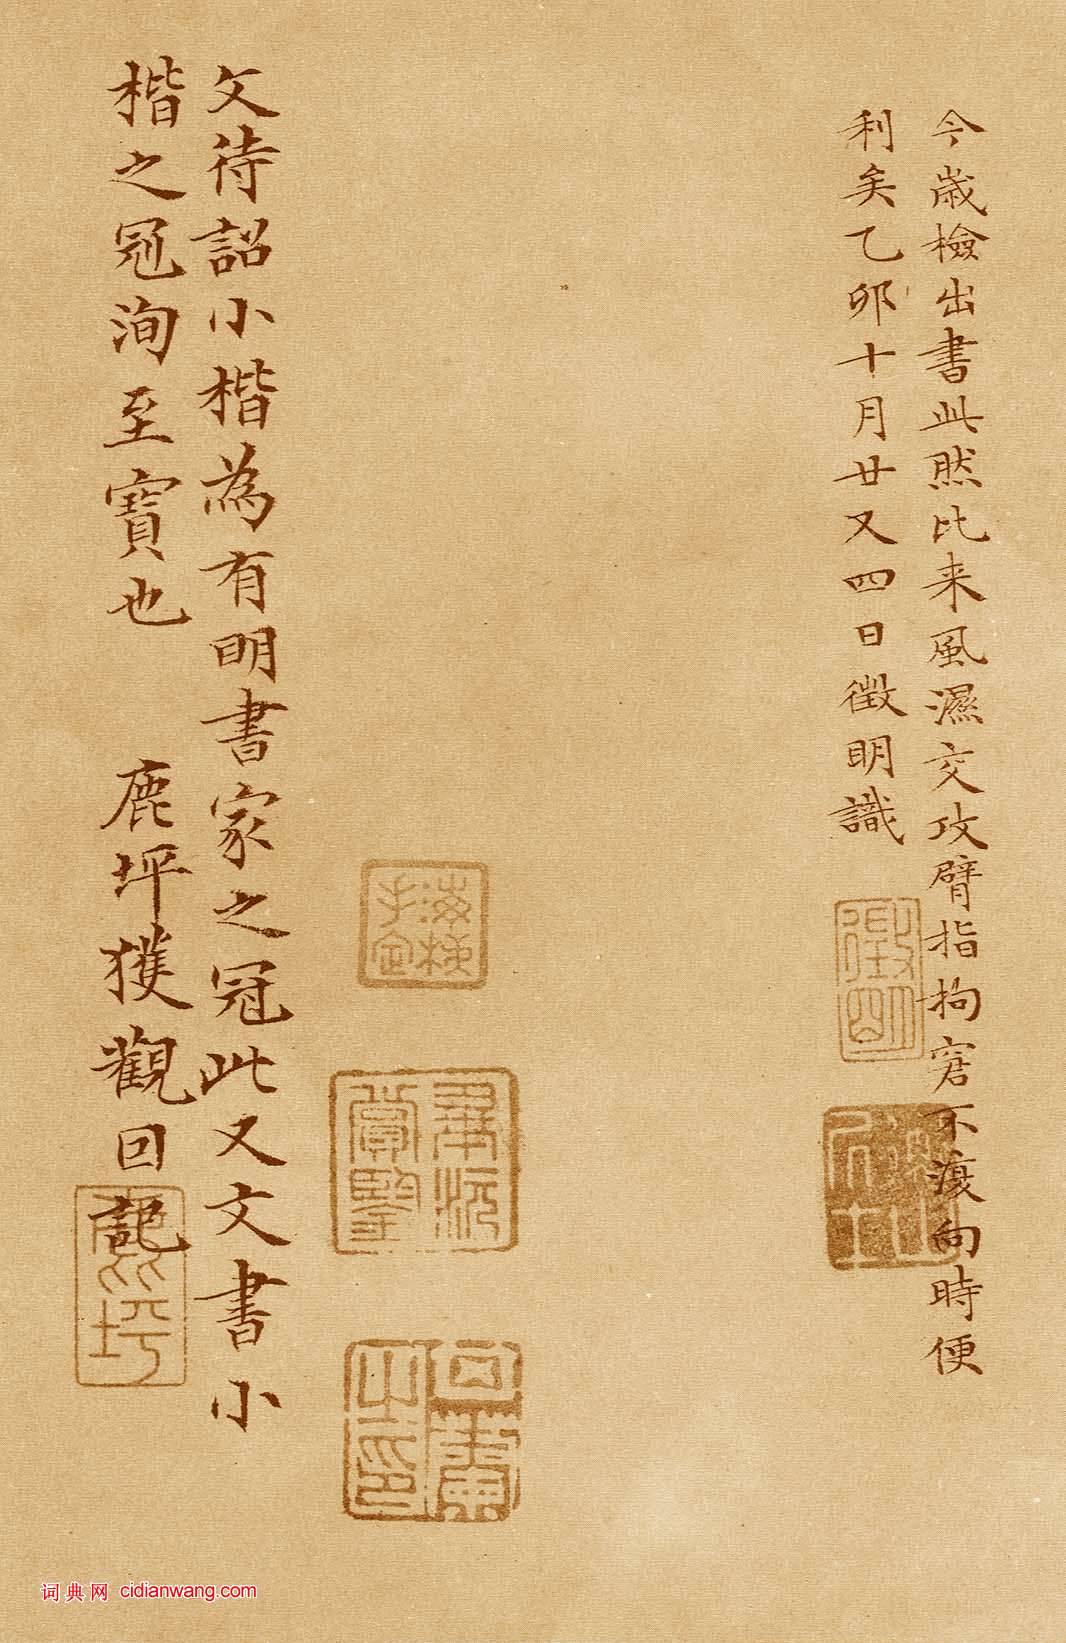 今歲檢出書此然比来風濕交攻臂指拘窘不復向時便
利矣乙卯十月廿又四日徵明識
徵明
文待詔小楷為有明書家之冠此又文書小
楷之冠洵至寶也　鹿坪獲觀回記
鹿坪
词典网 cidianwang.com